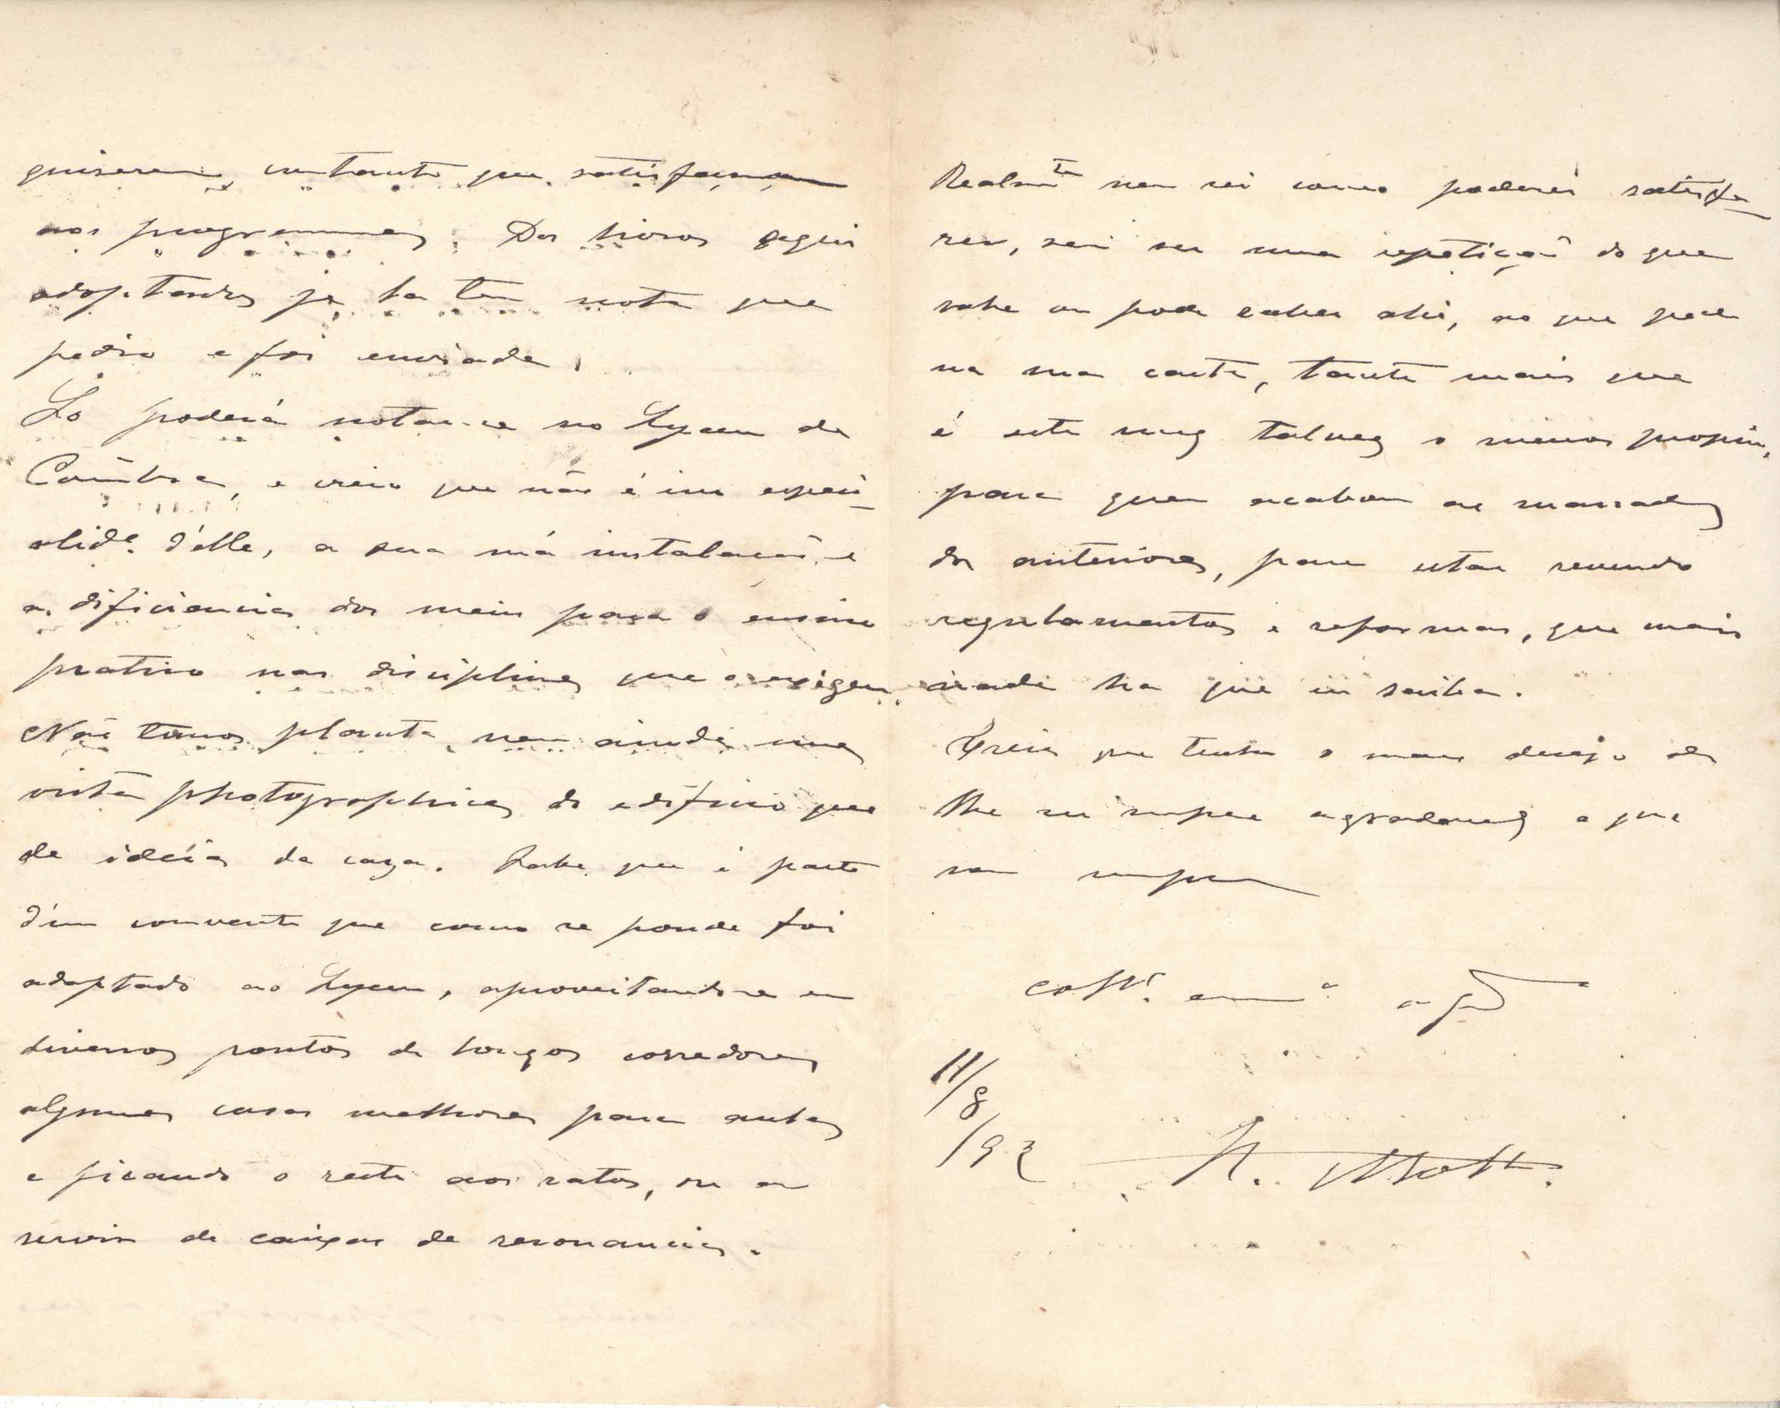 quiserem, comtanto que satisfaçam
aos programmas. Dos livros aqui
adoptados já la tem nota que
pedio e foi enviada.
So poderá notar-se no Lyceu de
Coimbra, e creio que não é isso especi-
alid.e d'elle, a sua má instalação, e
a dificiencia dos meios para o ensino
pratico nas disciplinas que o exigem.
Não temos planta, nem ainda uma
vista photographica do edificio que
dê idéia da caza. Sabe que é parte
d'um convento que como se poude foi
adaptado ao Lyceu, aproveitando-se em
diversos pontos de longos corredores
algumas casas melhores para aulas
e ficando o resto aos ratos, ou a
servir de caixas de resonancia.
Realm.te nem sei como poderei satisfa-
zer, sem ser uma repetição do que
sabe ou pode saber ahi, ao que pede
na sua carta, tanto mais que
é este mez talvez o menos proprio,
para quem acabou as massadas
dos anteriores, para estar revendo
regulamentos e reformas, que mais
nada ha que eu saiba.
Creia que tenho o maior desejo de
lhe ser sempre agradavel o que
sou sempre
coll.
11/8
/92